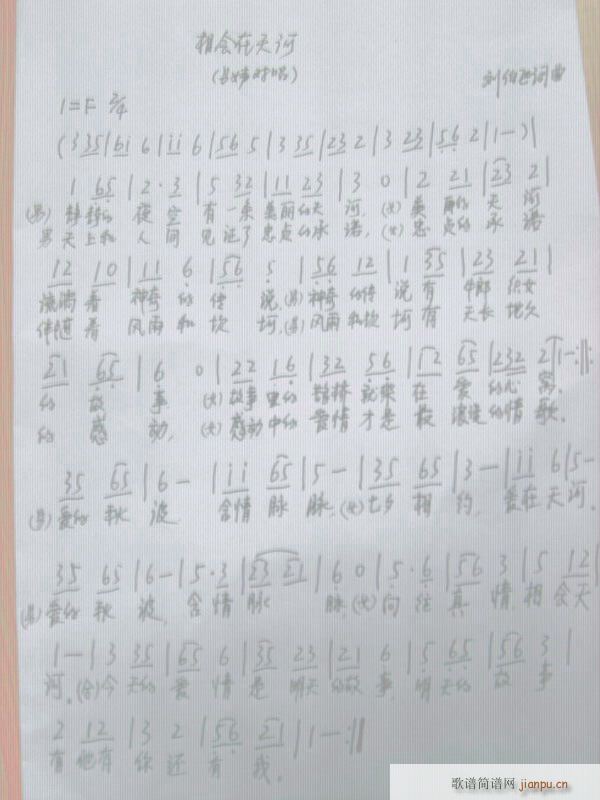 相会在天河
(男女对唱)
刘伯巡词曲
1=F 2/4
(3 35|6i 6|ii 6|56 5|3 35|23 2|3 23|56 2|1-)|
1 65|2·3|5 32|11 23|3 0|2 21|23 2|
(男)静静的 夜空 有一条美丽的天河,(女)美丽的天河
男 天上和 人间 见证了忠贞的承诺,(女)忠贞的承诺
12 10|11 6|56 5|56 12|1 35|23 21|
流淌着 神奇的传说,(男)神奇的传说有牛郎织女
伴随着 风雨和坎坷,(男)风雨和坎坷有天长地久
21 65|6 0|22 16|32 56|12 65|232 2|1-:||
的故事 (女)故事里的鹊桥就架在爱的心窝。
的感动,(女)感动中的爱情才是最浪漫的情歌。
35 65|6-|ii 65|5-|35 65|3-|ii 6|5-
(男)爱的秋波 含情脉脉,(女)七夕相约,爱在天河。
35 65|6-|5·3|23 21|6 0|5·6|56 3|5 12|
(男)爱的秋波,含情脉脉,(女)向往真情,相会天
1-|3 35|65 6|35 23|21 6|5 65|56 3|
河。(合)今天的爱情是明天的故事,明天的故事
2 12|3 2|56 21|1-:||
有他有你还有我。
歌谱简谱网 jianpu.cn